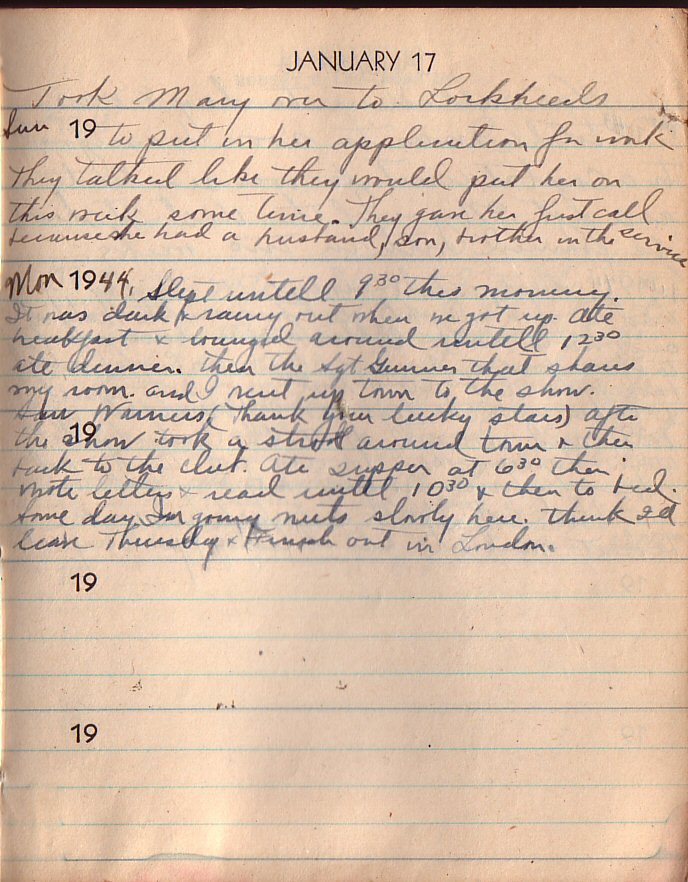 JANUARY 17
Took Mary over to Lockheeds
Sun 19 to put in her application for work
They talked like they would put her on
this week some time. They gave her first call
because she had a husband, son, brother in the service
Mon 1944. Slept untell 9 30 this morning.
It was dark & rainy out when we got up. Ate
breakfast & lounged around untell 12 30
ate dinner. then the Sgt Gunner that shares
my room. and I went up town to the show.
Saw Warners, (Thank your lucky stars) after
19
the show took a stroll around town & then
back to the club. Ate supper at 6 30 then
wrote letters & read untell 10 30 & then to bed.
some day. Im going nuts slowly here. think I'll
leave Thursday & finish out in London.
19
19